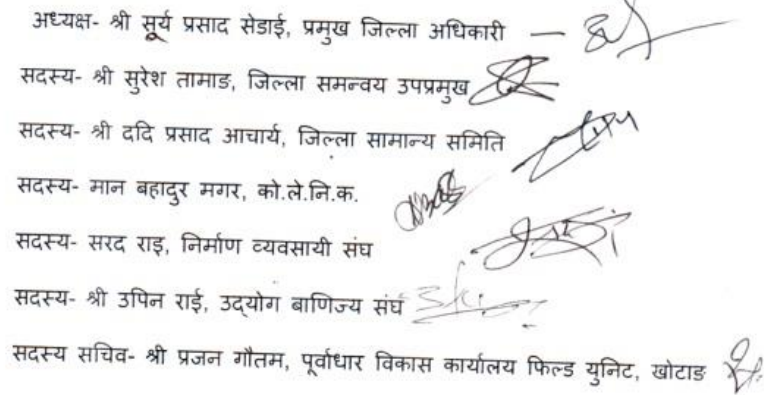 अध्यक्ष- श्री सूर्य प्रसाद सेडाई, प्रमुख जिल्ला अधिकारी —
सदस्य- श्री सुरेश तामाङ, जिल्ला समन्वय उपप्रमुख
सदस्य- श्री ददि प्रसाद आचार्य, जिल्ला सामान्य समिति
सदस्य- मान बहादुर मगर, को.ले.नि.क.
सदस्य- सरद राइ, निर्माण व्यवसायी संघ
सदस्य- श्री उपिन राई, उद्योग बाणिज्य संघ
सदस्य सचिव- श्री प्रजन गौतम, पूर्वाधार विकास कार्यालय फिल्ड युनिट, खोटाङ